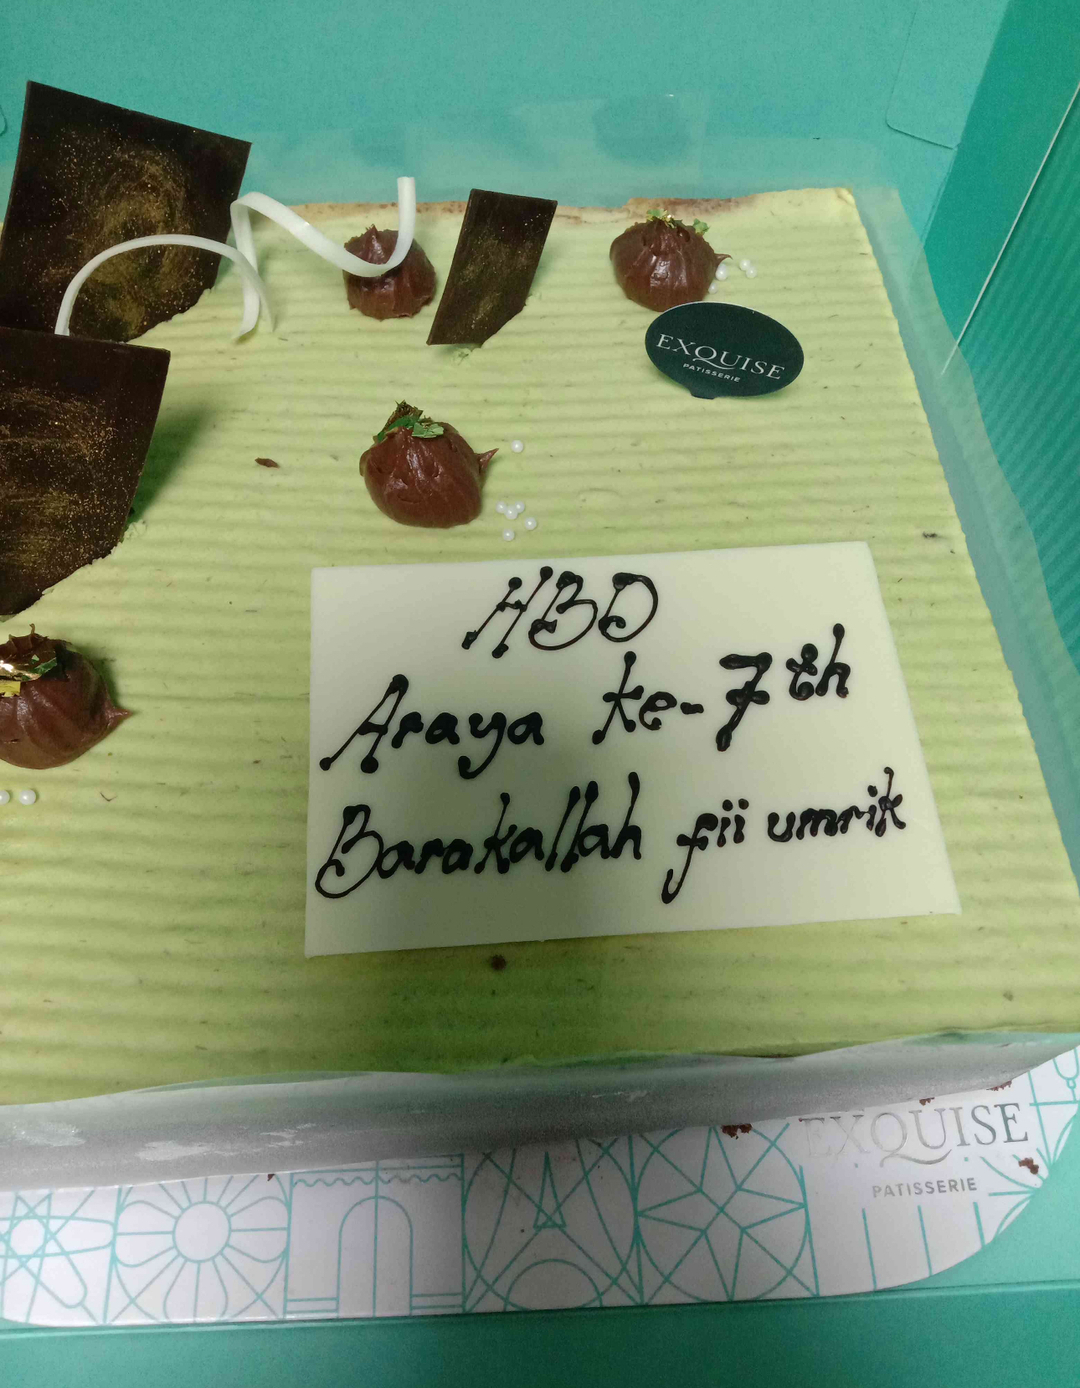 EXQUISE
PATISSERIE
HBD
Araya ke-7th
Barakallah fii umrik
EXQUISE
PATISSERIE